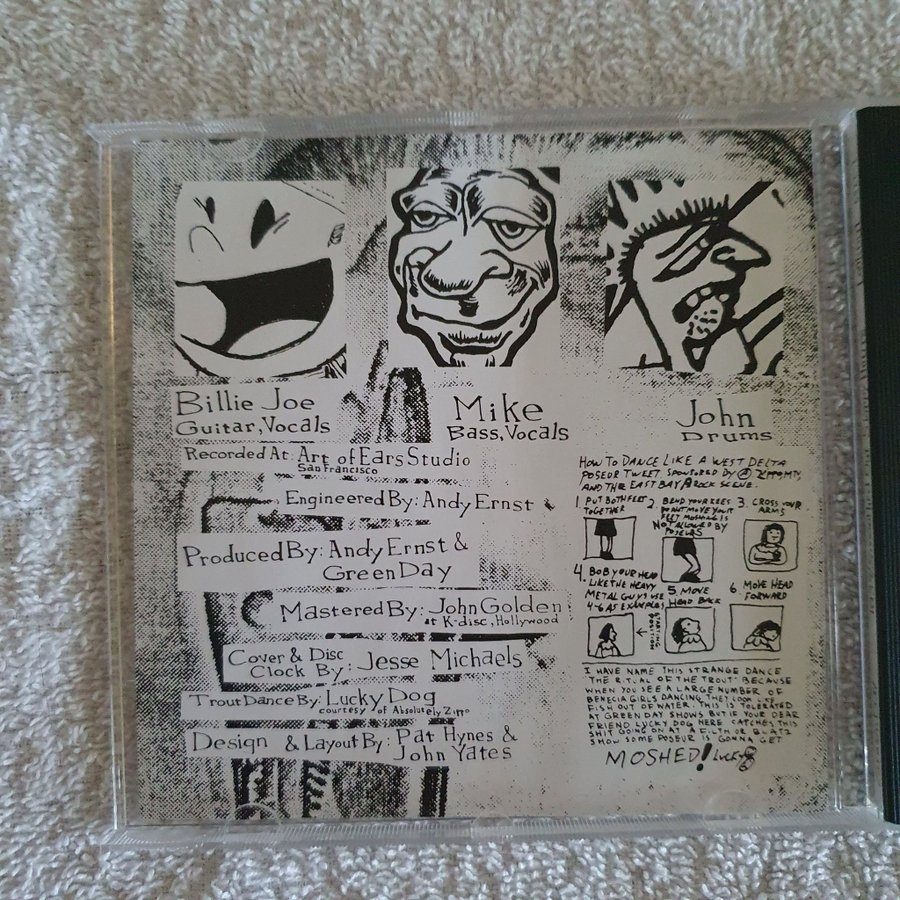 Billie Joe
Guitar, Vocals
Mike
Bass, Vocals
John
Drums
Recorded At: Art of Ears Studio
San Francisco
Engineered By: Andy Ernst
Produced By: Andy Ernst &
Green Day
Mastered By: John Golden
at K-disc, Hollywood
Cover & Disc
Clock By: Jesse Michaels
Trout Dance By: Lucky Dog
courtesy of Absolutely Zippo
Design & Layout By: Pat Hynes &
John Yates
HOW TO DANCE LIKE A WEST DELTA
POSEUR TWEET SPONSORED BY
AND THE EAST BAY ROCK SCENE.
1 PUT BOTH FEET
TOGETHER
2. BEND YOUR KNEES
DO NOT MOVE YOUR
FEET MOSHING IS
NOT ALLOWED BY
POSEURS
3. CROSS YOUR
ARMS
4. BOB YOUR HEAD
LIKE THE HEAVY
METAL GUYS USE
4-6 AS EXAMPLES
STARTING
POSITION
5. MOVE
HEAD BACK
6. MOVE HEAD
FORWARD
I HAVE NAME THIS STRANGE DANCE
THE R.T.AL OF THE TROUT. BECAUSE
WHEN YOU SEE A LARGE NUMBER OF
BENECIA GIRLS DANCING THEY LOOK LIKE
FISH OUT OF WATER. THIS IS TOLERATED
AT GREEN DAY SHOWS BUT IF YOUR DEAR
FRIEND LUCKY DOG HERE CATCHES THIS
SHIT GOING ON AT A FILTH OR BLATZ
SHOW SOME POSEUR IS GONNA GET
MOSHED! LUCKY